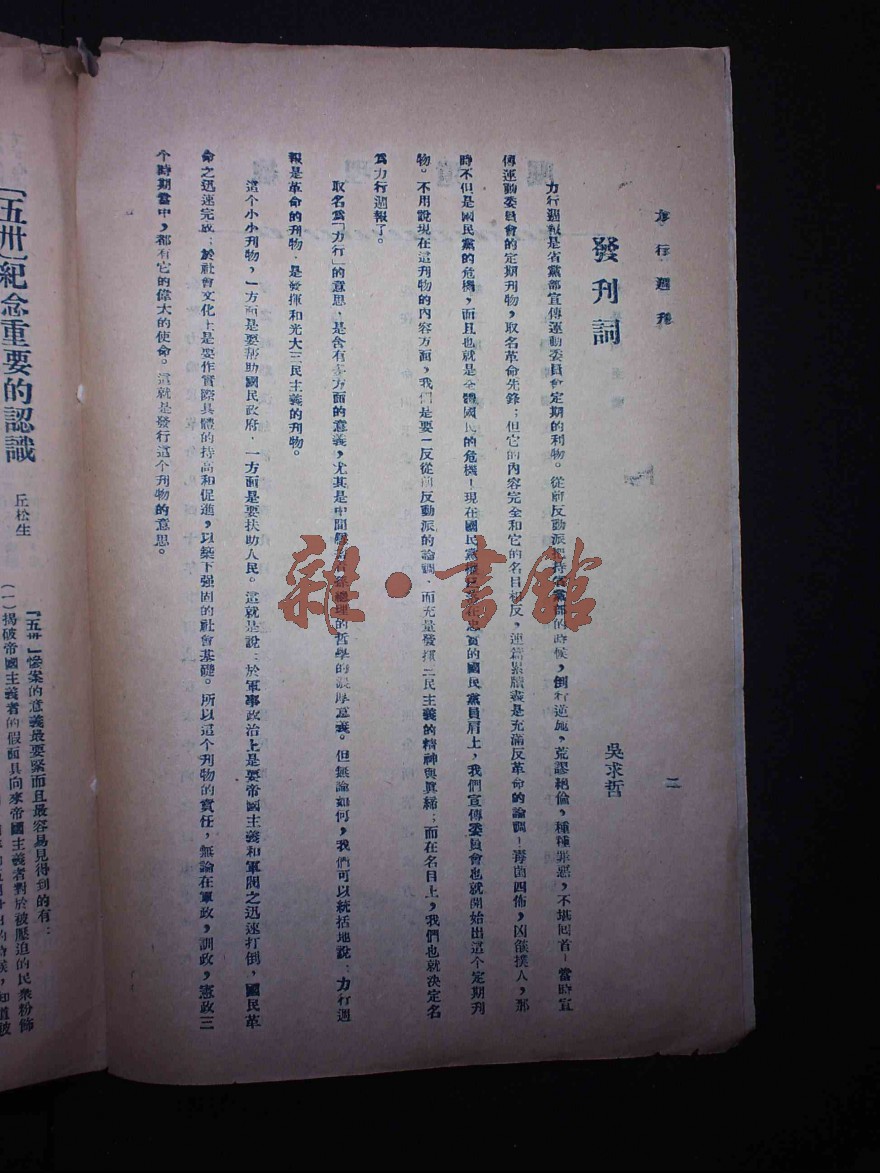 力行週刊
二
發刊詞
吳求哲
力行週報是省黨部宣傳運動委員會定期的利物。從前反動派把持省黨部的時候，倒行逆施，荒謬絕倫，種種罪惡，不堪回首！當時宣
傳運動委員會的定期刊物，取名革命先鋒；但它的內容完全和它的名目相反，連篇累牘盡是充滿反革命的論調！毒菌四佈，凶燄撲人，那
時不但是國民黨的危機，而且也就是全體國民的危機！現在國民黨權已落在忠實的國民黨員肩上，我們宣傳委員會也就開始出這个定期刊
物。不用說現在這刊物的內容方面，我們是要一反從前反動派的論調，而充量發揮三民主義的精神與眞締；而在名目上，我們也就決定名
爲力行週報了。
取名爲「力行」的意思，是含有多方面的意義，尤其是中間 總理的哲學的濃厚意義。但無論如何，我們可以統括地說：力行週
報是革命的刊物，是發揮和光大三民主義的刊物。
這个小小刊物，一方面是要幫助國民政府，一方面是要扶助人民。這就是說：於軍事政治上是要帝國主義和軍閥之迅速打倒，國民革
命之迅速完成；於社會文化上是要作實際具體的持高和促進，以築下强固的社會基礎。所以這个刊物的責任，無論在軍政，訓政，憲政三
个時期當中，都有它的偉大的使命。這就是發行這个刊物的意思。
「五卅」紀念重要的認識
丘松生
「五卅」慘案的意義最要緊而且最容易見得到的有：
（一）揭破帝國主義者的假面具向來帝國主義者對於被壓迫的民衆粉飾
雜·書館